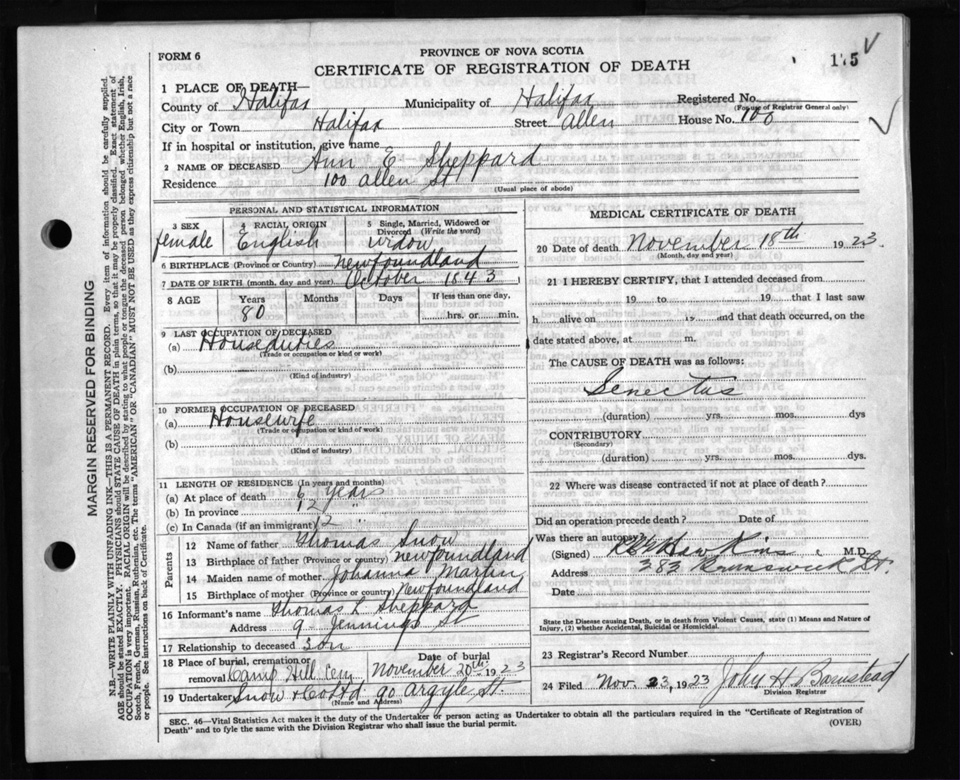 FORM 6
PROVINCE OF NOVA SCOTIA
CERTIFICATE OF REGISTRATION OF DEATH
175
1 PLACE OF DEATH—
County of Halifax Municipality of Halifax Registered No.
(For use of Registrar General only)
City or Town Halifax Street Allen House No. 100
If in hospital or institution, give name
2 NAME OF DECEASED Ann E. Sheppard
Residence 100 Allen St
(Usual place of abode)
PERSONAL AND STATISTICAL INFORMATION
3 SEX female
4 RACIAL ORIGIN English
5 Single, Married, Widowed or Divorced (Write the word) widow
6 BIRTHPLACE (Province or Country) Newfoundland
7 DATE OF BIRTH (month, day and year) October 1843
8 AGE Years 80 Months Days If less than one day, ......hrs. or......min.
9 LAST OCCUPATION OF DECEASED
(a) Houseduties
(Trade or occupation or kind of work)
(b)
(Kind of industry)
10 FORMER OCCUPATION OF DECEASED
(a) Housewife
(Trade or occupation or kind of work)
(b)
(Kind of industry)
11 LENGTH OF RESIDENCE (In years and months)
(a) At place of death 6 years
(b) In province 12 "
(c) In Canada (if an immigrant) 12
Parents
12 Name of father Thomas Snow
13 Birthplace of father (Province or country) Newfoundland
14 Maiden name of mother Johanna Martin
15 Birthplace of mother (Province or country) Newfoundland
16 Informant's name Thomas L Sheppard
Address 9 Jennings St
17 Relationship to deceased Son
18 Place of burial, cremation or removal Camp Hill Cem
Date of burial November 20th 1923
19 Undertaker Snow & Co Ltd 90 Argyle St.
(Name and Address)
MEDICAL CERTIFICATE OF DEATH
20 Date of death November 18th 1923.
(Month, day and year)
21 I HEREBY CERTIFY, that I attended deceased from
19 to 19 that I last saw
h alive on 19 and that death occurred, on the
date stated above, at m.
The CAUSE OF DEATH was as follows:
Senectus
(duration) yrs. mos. dys
CONTRIBUTORY
(Secondary)
(duration) yrs. mos. dys.
22 Where was disease contracted if not at place of death?
Did an operation precede death? Date of
Was there an autopsy?
(Signed) Hawkins M.D.
Address 282 Brunswick St.
Date
State the Disease causing Death, or in death from Violent Causes, state (1) Means and Nature of
Injury, (2) whether Accidental, Suicidal or Homicidal.
23 Registrar's Record Number
24 Filed Nov. 23, 1923 John H Barnstead
Division Registrar
SEC. 46—Vital Statistics Act makes it the duty of the Undertaker or person acting as Undertaker to obtain all the particulars required in the "Certificate of Registration of
Death" and to fyle the same with the Division Registrar who shall issue the burial permit.
(OVER)
MARGIN RESERVED FOR BINDING
N.B.—WRITE PLAINLY WITH UNFADING INK—THIS IS A PERMANENT RECORD. Every item of information should be carefully supplied.
AGE should be stated EXACTLY. PHYSICIANS should STATE CAUSE OF DEATH in plain terms, so that it may be properly classified. Exact statement of
OCCUPATION is very important. RACIAL ORIGIN will be described by stating to what people or tongue the deceased person belonged whether English, Irish,
Scotch, French, German, Russian, Ruthenian, etc. The terms "AMERICAN" OR "CANADIAN" MUST NOT BE USED as they express citizenship but not a race
or people. See instructions on back of Certificate.